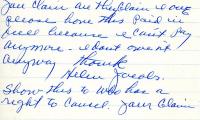 you claim an
please have this Paid in
full because I can't Pay
anymore - I don't owe it
anyway Thank
Helen Jacobs.
Show this to who has a
right to Cancel. your Claim